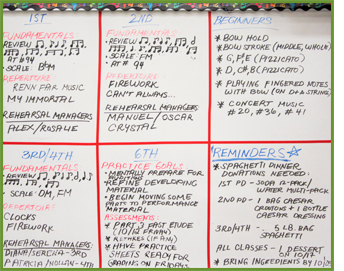 1ST
FUNDAMENTALS
REVIEW
AT # 94
• SCALE: BbM
REPERTOIRE
RENN FAIR MUSIC
MY IMMORTAL
REHEARSAL MANAGERS
ALEX/ROSALIE
2ND
FUNDAMENTALS
REVIEW
• SCALE: FM
AT # 94
REPERTOIRE
FIREWORK
CAN'T ALWAYS...
REHEARSAL MANAGERS
MANUEL/OSCAR
CRYSTAL
BEGINNERS
* BOW HOLD
* BOW STROKE (MIDDLE, WHOLE)
* (PIZZICATO)
* (PIZZICATO)
* PLAYING FINGERED NOTES
WITH BOW (ON STRING)
* CONCERT MUSIC
#20, #36, #41
3RD/4TH
FUNDAMENTALS
REVIEW
• SCALE: DM, FM
REPERTOIRE
CLOCKS
FIREWORK
REHEARSAL MANAGERS:
DIANA/SERGIA-3RD
PATRICIA/NOLLAN-4TH
6TH
PRACTICE GOALS
• MENTALLY PREPARE FOR
AUDITION
• REFINE DEVELOPING
MATERIAL
• BEGIN MOVING SOME
PART TO PERFORMANCE
MATERIAL
ASSESSMENTS
* PART 3 FAST ETUDE
(10/15 FRIDAY)
* HAVE PRACTICE
SHEETS READY FOR
GRADING ON FRIDAYS
REMINDERS
* SPAGHETTI DINNER
DONATIONS NEEDED:
1ST PD - SODA 12-PACK/
WATER MULTI-PACK
2ND PD - 1 BAG CAESAR
CROUTONS + 1 BOTTLE
CAESAR DRESSING
3RD/4TH - 5 LB. BAG
SPAGHETTI
ALL CLASSES - 1 DESSERT
ON 10/19
* BRING INGREDIENTS BY